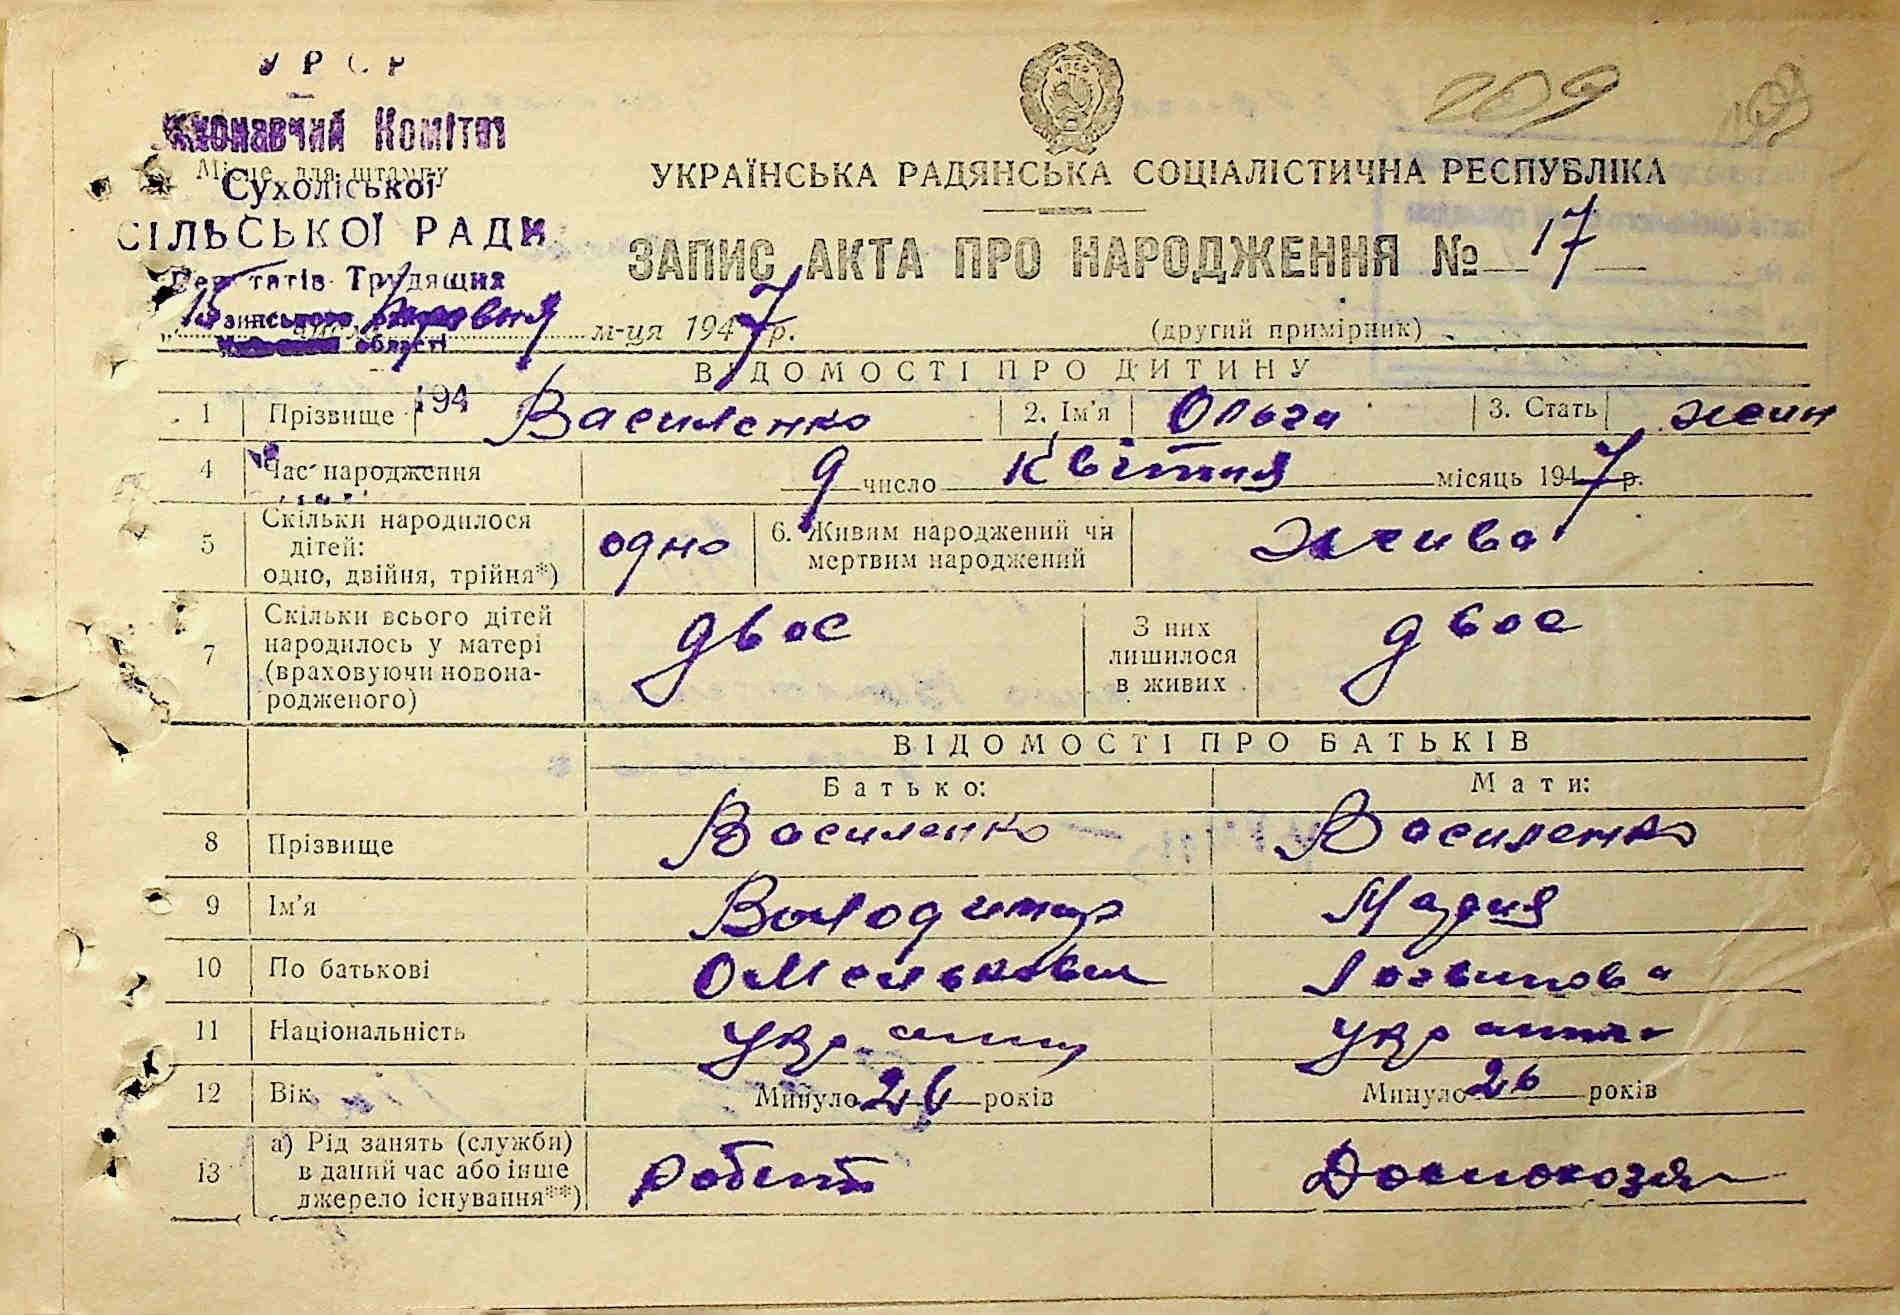 УРСР
Виконавчий Комітет
Місце для штампу
Сухоліської
СІЛЬСЬКОЇ РАДИ
Депутатів Трудящих
області
194
209
УКРАЇНСЬКА РАДЯНСЬКА СОЦІАЛІСТИЧНА РЕСПУБЛІКА
ЗАПИС АКТА ПРО НАРОДЖЕННЯ № 17
15 м-ця 1947 р. (другий примірник)
ВІДОМОСТІ ПРО ДИТИНУ
1 Прізвище Василенко 2. Ім'я Ольга 3. Стать жін
4 Час народження 9 число Квітня місяць 1947 р.
5 Скільки народилося
дітей:
одно, двійня, трійня*) одно 6. Живим народжений чи
мертвим народжений жива
7 Скільки всього дітей
народилось у матері
(враховуючи новона-
родженого) двоє З них
лишилося
в живих двоє
ВІДОМОСТІ ПРО БАТЬКІВ
Батько: Мати:
8 Прізвище Василенко Василенко
9 Ім'я Володимир Мария
10 По батькові Омелькович Логвиновна
11 Національність
12 Вік Минуло 26 років Минуло 26 років
13 а) Рід занять (служби)
в даний час або інше
джерело існування**)